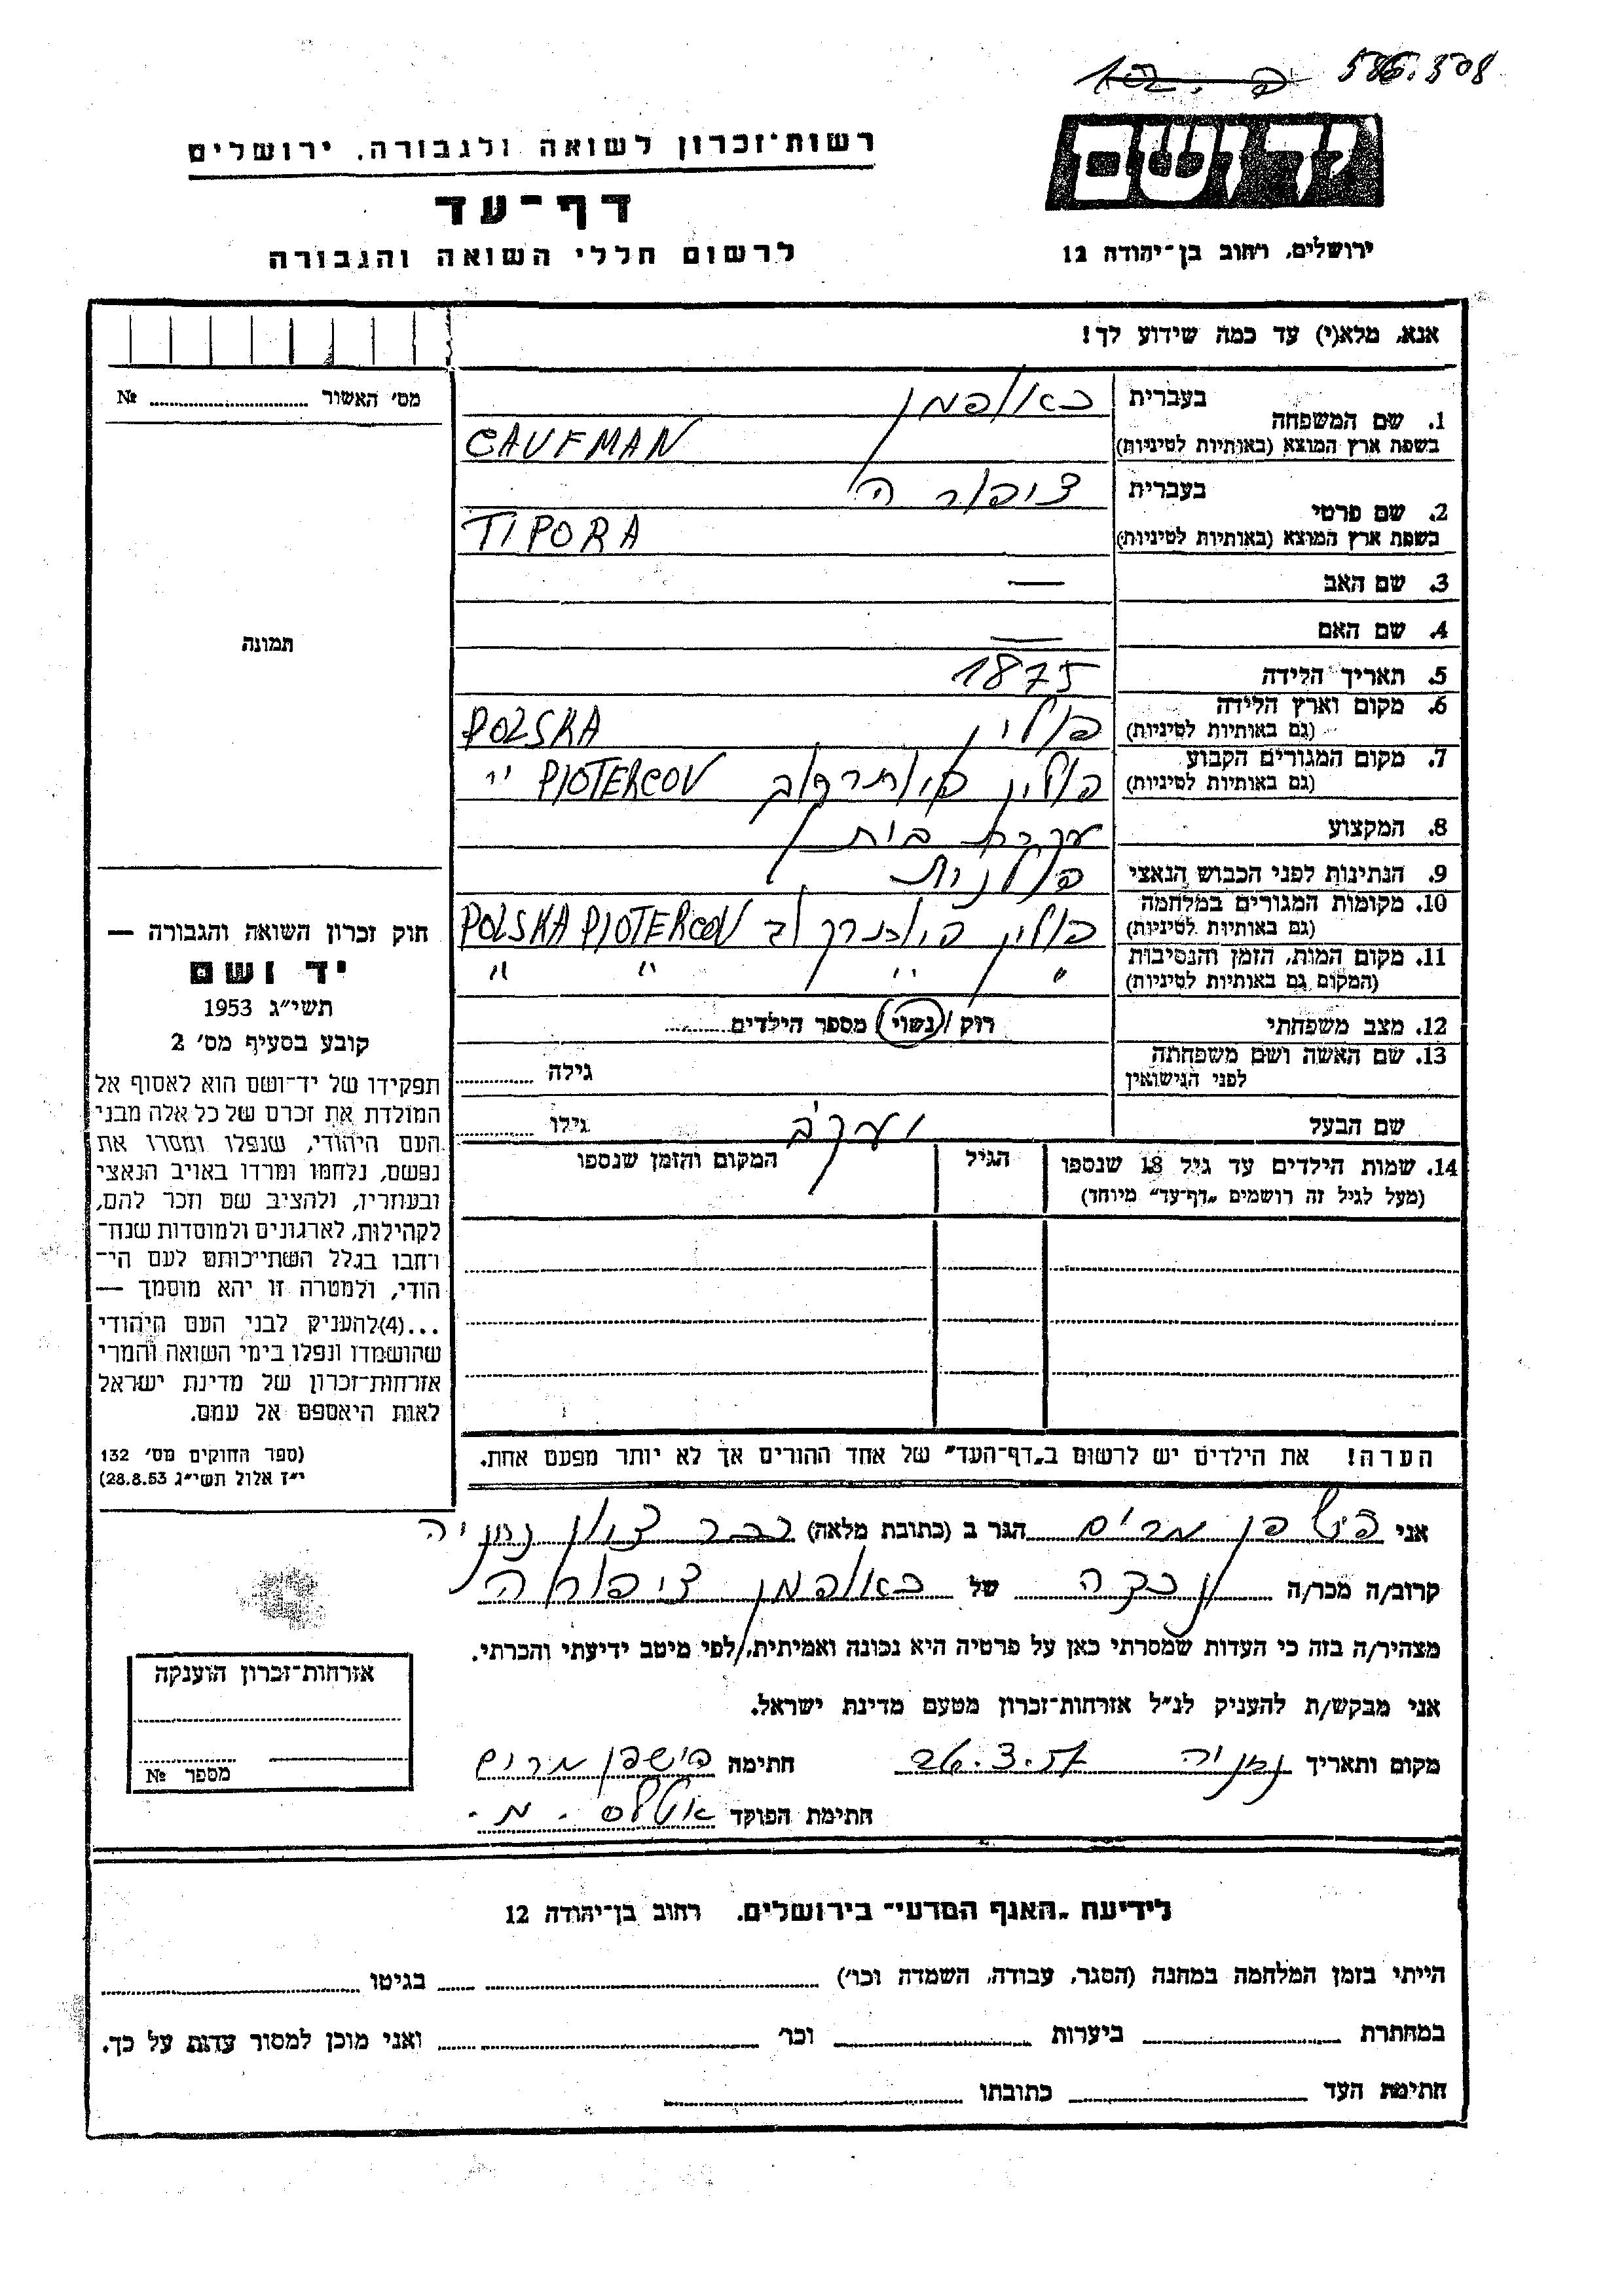 586.508
יד ושם
רשות־זכרון לשואה ולגבורה, ירושלים
דף־עד
לרשום חללי השואה והגבורה
ירושלים, רחוב בן־יהודה 12
אנא, מלא(י) עד כמה שידוע לך!
מס׳ האשור ........ №
1. שם המשפחה
בעברית כאופמן
בשפת ארץ המוצא (באותיות לטיניות) CAUFMAN
2. שם פרטי
בעברית ציפורה
בשפת ארץ המוצא (באותיות לטיניות) TIPORA
3. שם האב —
4. שם האם —
תמונה
5. תאריך הלידה 1875
6. מקום וארץ הלידה פולין POLSKA
(גם באותיות לטיניות)
7. מקום המגורים הקבוע פולין פיוטרקוב PIOTERCOV "
(גם באותיות לטיניות)
8. המקצוע עקרת בית
9. הנתינות לפני הכבוש הנאצי פולנית
10. מקומות המגורים במלחמה פולין פיוטרקוב POLSKA PIOTERCOV
(גם באותיות לטיניות)
11. מקום המות, הזמן והנסיבות " " " "
(המקום גם באותיות לטיניות)
12. מצב משפחתי רווק/(נשוי) מספר הילדים........
13. שם האשה ושם משפחתה גילה ........
לפני הנישואין
שם הבעל יעקב גילו ........
14. שמות הילדים עד גיל 18 שנספו הגיל המקום והזמן שנספו
(מעל לגיל זה רושמים „דף־עד״ מיוחד)
חוק זכרון השואה והגבורה —
יד ושם
תשי״ג 1953
קובע בסעיף מס׳ 2
תפקידו של יד־ושם הוא לאסוף אל
המולדת את זכרם של כל אלה מבני
העם היהודי, שנפלו ומסרו את
נפשם, נלחמו ומרדו באויב הנאצי
ובעוזריו, ולהציב שם וזכר להם,
לקהילות, לארגונים ולמוסדות שנח־
רחבו בגלל השתייכותם לעם הי־
הודי, ולמטרה זו יהא מוסמך —
...(4)להעניק לבני העם היהודי
שהושמדו ונפלו בימי השואה והמרי
אזרחות־זכרון של מדינת ישראל
לאות היאספם אל עמם.
(ספר החוקים מס׳ 132
י״ז אלול תשי״ג 28.8.53)
הערה! את הילדים יש לרשום ב„דף־העד״ של אחד ההורים אך לא יותר מפעם אחת.
אני פישפן מרים הגר ב (כתובת מלאה) נתניה
קרוב/ה מכר/ה נכדה של כאופמן ציפורה
מצהיר/ה בזה כי העדות שמסרתי כאן על פרטיה היא נכונה ואמיתית, לפי מיטב ידיעתי והכרתי.
אני מבקש/ת להעניק לנ״ל אזרחות־זכרון מטעם מדינת ישראל.
מקום ותאריך נתניה 26.3.57 חתימה פישפן מרים
חתימת הפוקד
אזרחות־זכרון הוענקה
מספר №
לידיעת „האגף המדעי״ בירושלים. רחוב בן־יהודה 12
הייתי בזמן המלחמה במחנה (הסגר, עבודה, השמדה וכו׳) ........ בגיטו ........
במחתרת ........ ביערות ........ וכו׳ ........ ואני מוכן למסור עדות על כך.
חתימת העד ........ כתובתו ........